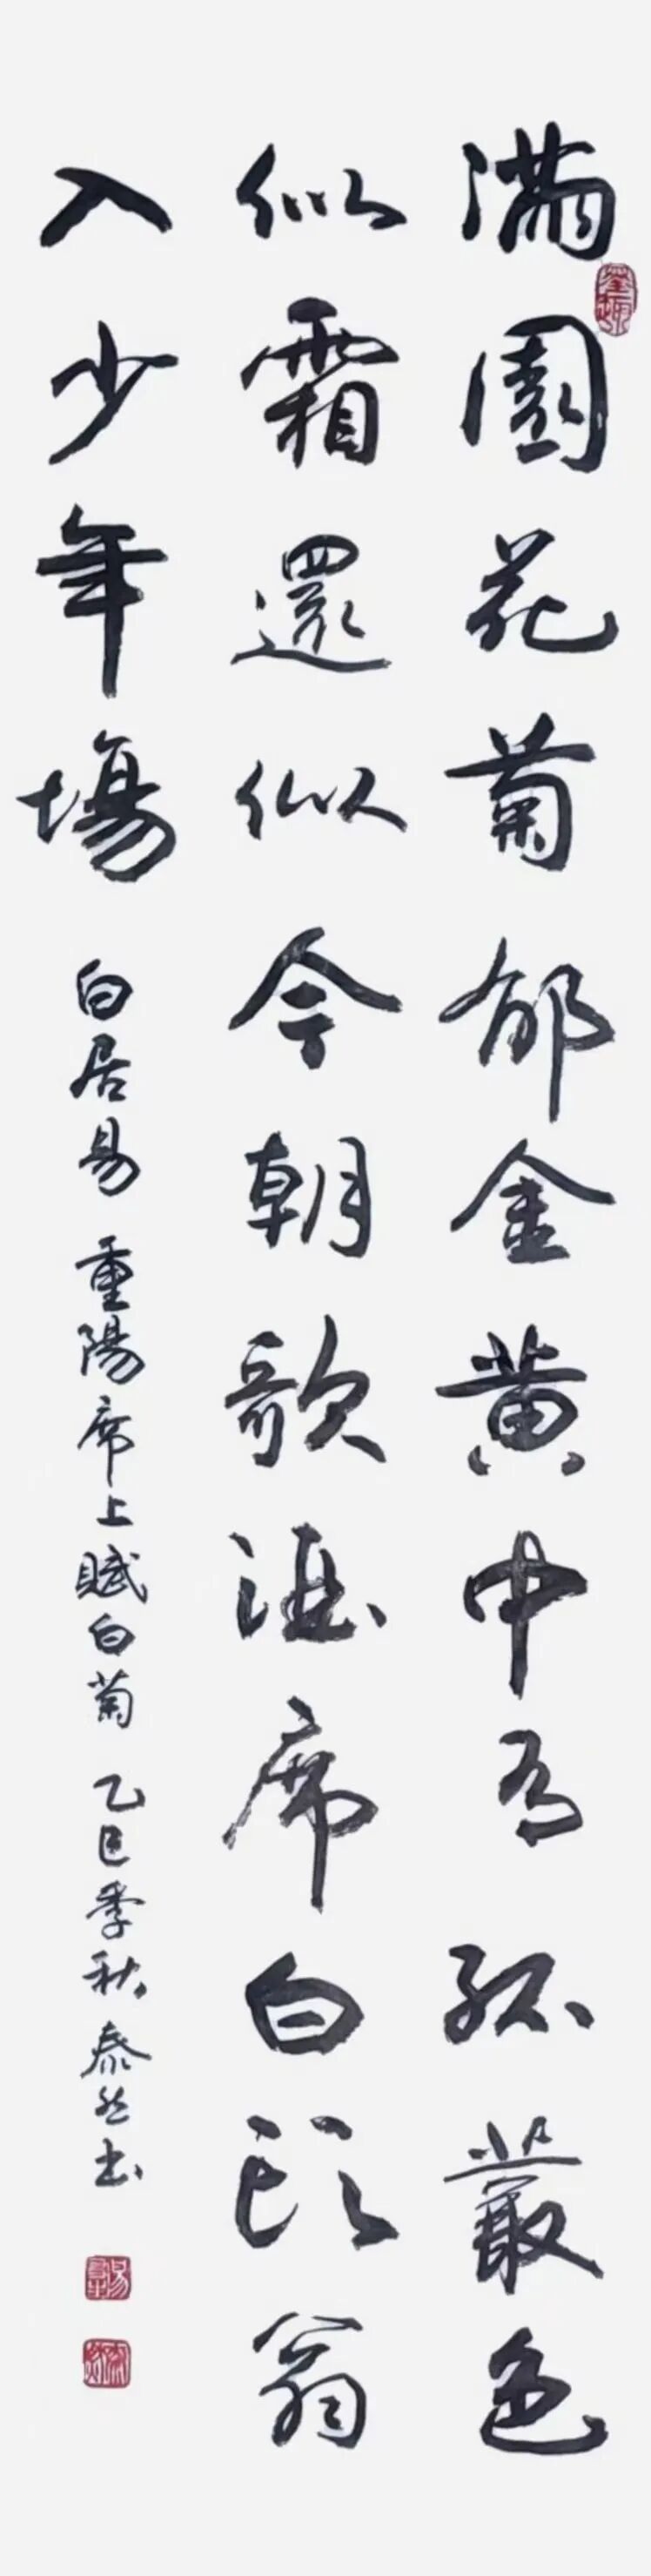 滿園花菊郁金黃中有孤叢色
似霜還似今朝歌酒席白頭翁
入少年場 白居易 重陽席上賦白菊 乙巳季秋 泰然书